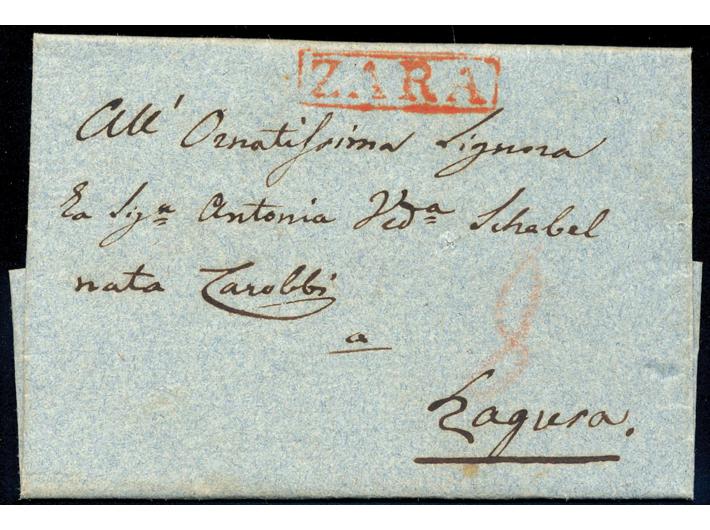 ZARA
All' Ornatissima Signora
La Sigª Antonia Vedª Schabel
nata Zarobbi
a
Ragusa.